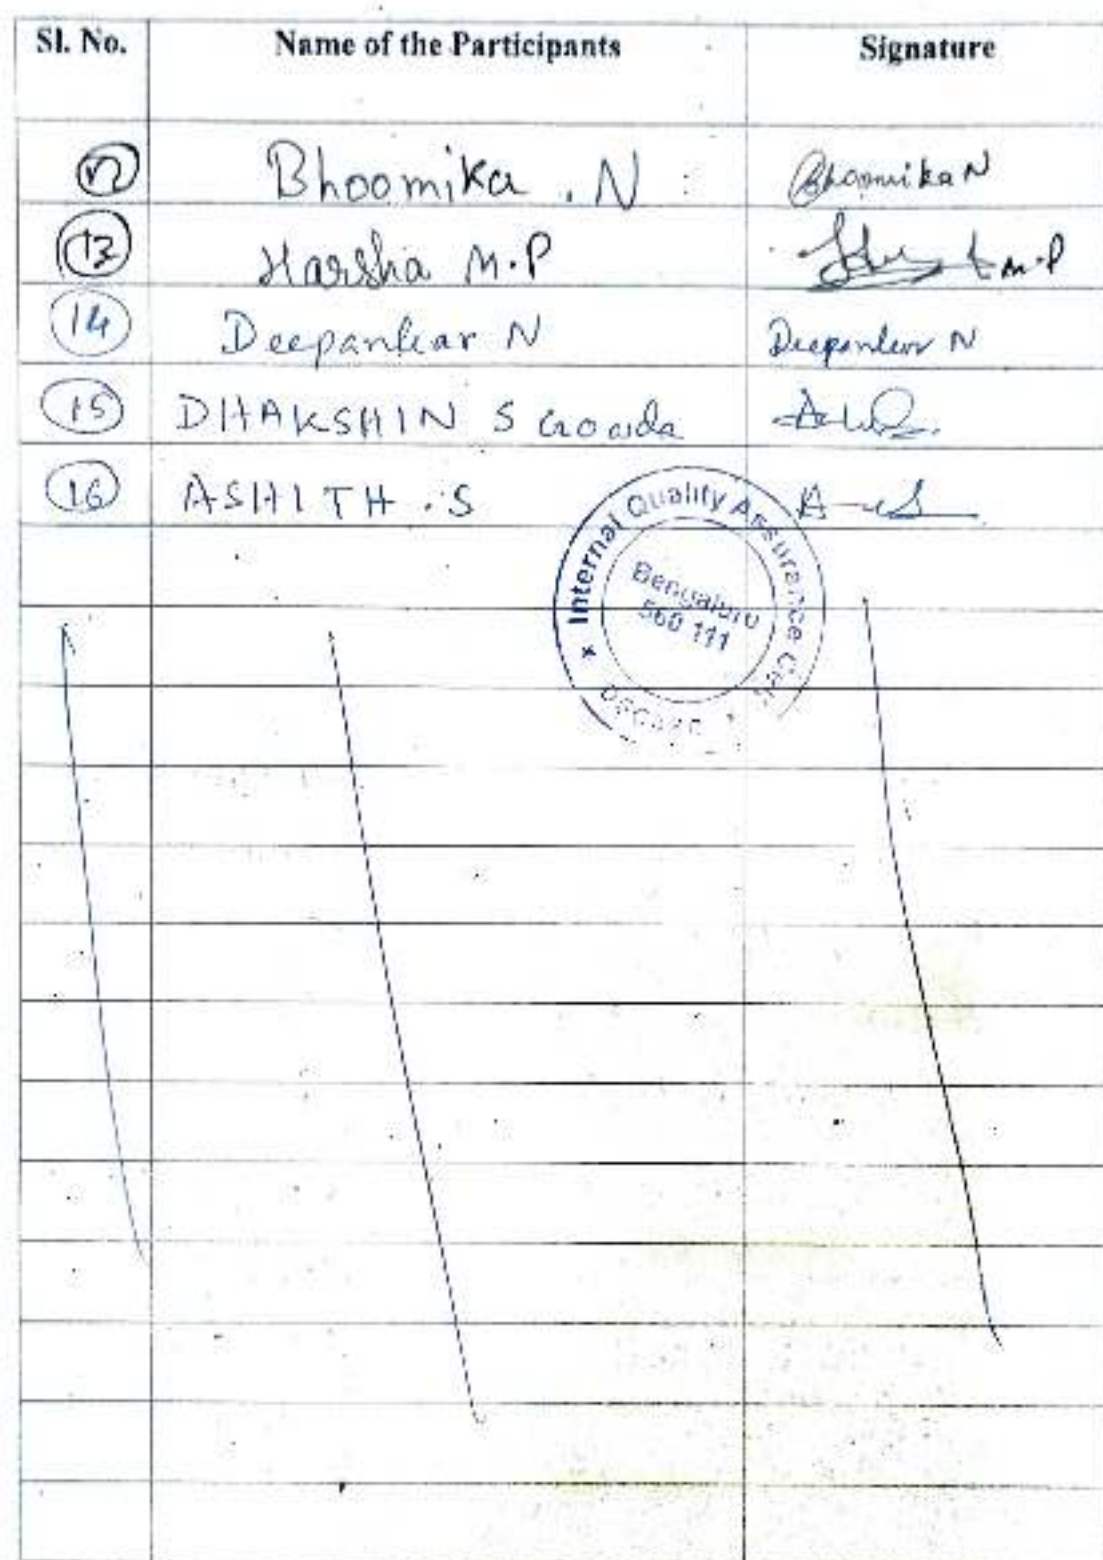 Sl. No. Name of the Participants Signature
12 Bhoomika . N Bhoomika N
13 Harsha M.P M.P
14 Deepankar N Deepankar N
15 DHAKSHIN S Gowda
16 ASHITH . S
Internal Quality Assurance Cell
Bengaluru
560 111